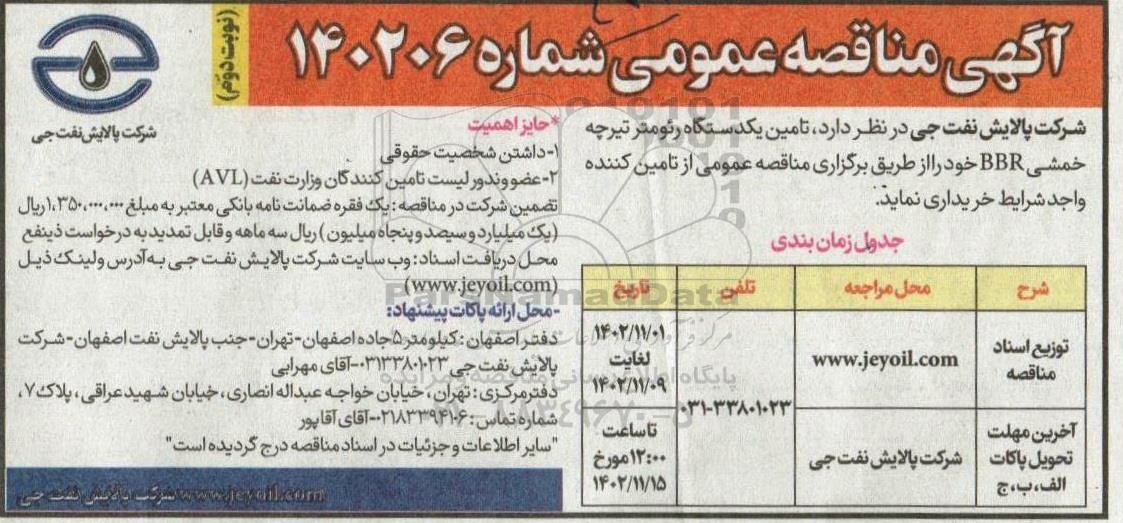 آگهی مناقصه عمومی شماره ۱۴۰۲۰۶
(نوبت دوم)
شرکت پالایش نفت جی
شرکت پالایش نفت جی در نظر دارد، تامین یکدستگاه رئومتر تیرچه
خمشی BBR خود را از طریق برگزاری مناقصه عمومی از تامین کننده
واجد شرایط خریداری نماید.
جدول زمان بندی
شرح محل مراجعه تلفن تاریخ
توزیع اسناد مناقصه www.jeyoil.com ۰۳۱-۳۳۸۰۱۰۲۳ ۱۴۰۲/۱۱/۰۱ لغایت ۱۴۰۲/۱۱/۰۹
آخرین مهلت تحویل پاکات الف، ب، ج شرکت پالایش نفت جی تا ساعت ۱۲:۰۰ مورخ ۱۴۰۲/۱۱/۱۵
*حایز اهمیت
۱-داشتن شخصیت حقوقی
۲-عضو وندور لیست تامین کنندگان وزارت نفت (AVL)
تضمین شرکت در مناقصه: یک فقره ضمانت نامه بانکی معتبر به مبلغ ۱،۳۵۰،۰۰۰،۰۰۰ ریال
(یک میلیارد و سیصد و پنجاه میلیون) ریال سه ماهه و قابل تمدید به درخواست ذینفع
محل دریافت اسناد: وب سایت شرکت پالایش نفت جی به آدرس و لینک ذیل
(www.jeyoil.com)
-محل ارائه پاکات پیشنهاد:
دفتر اصفهان: کیلومتر ۵ جاده اصفهان-تهران-جنب پالایش نفت اصفهان-شرکت
پالایش نفت جی ۰۳۱۳۳۸۰۱۰۲۳-آقای مهرابی
دفتر مرکزی: تهران، خیابان خواجه عبداله انصاری، خیابان شهید عراقی، پلاک ۷،
شماره تماس: ۰۲۱۸۳۳۹۴۱۰۶-آقای آقاپور
"سایر اطلاعات و جزئیات در اسناد مناقصه درج گردیده است"
www.jeyoil.com شرکت پالایش نفت جی
ParsNamadData
پایگاه اطلاع رسانی مناقصه و مزایده
۰۲۱-۸۸۳۴۹۶۷۰-۵